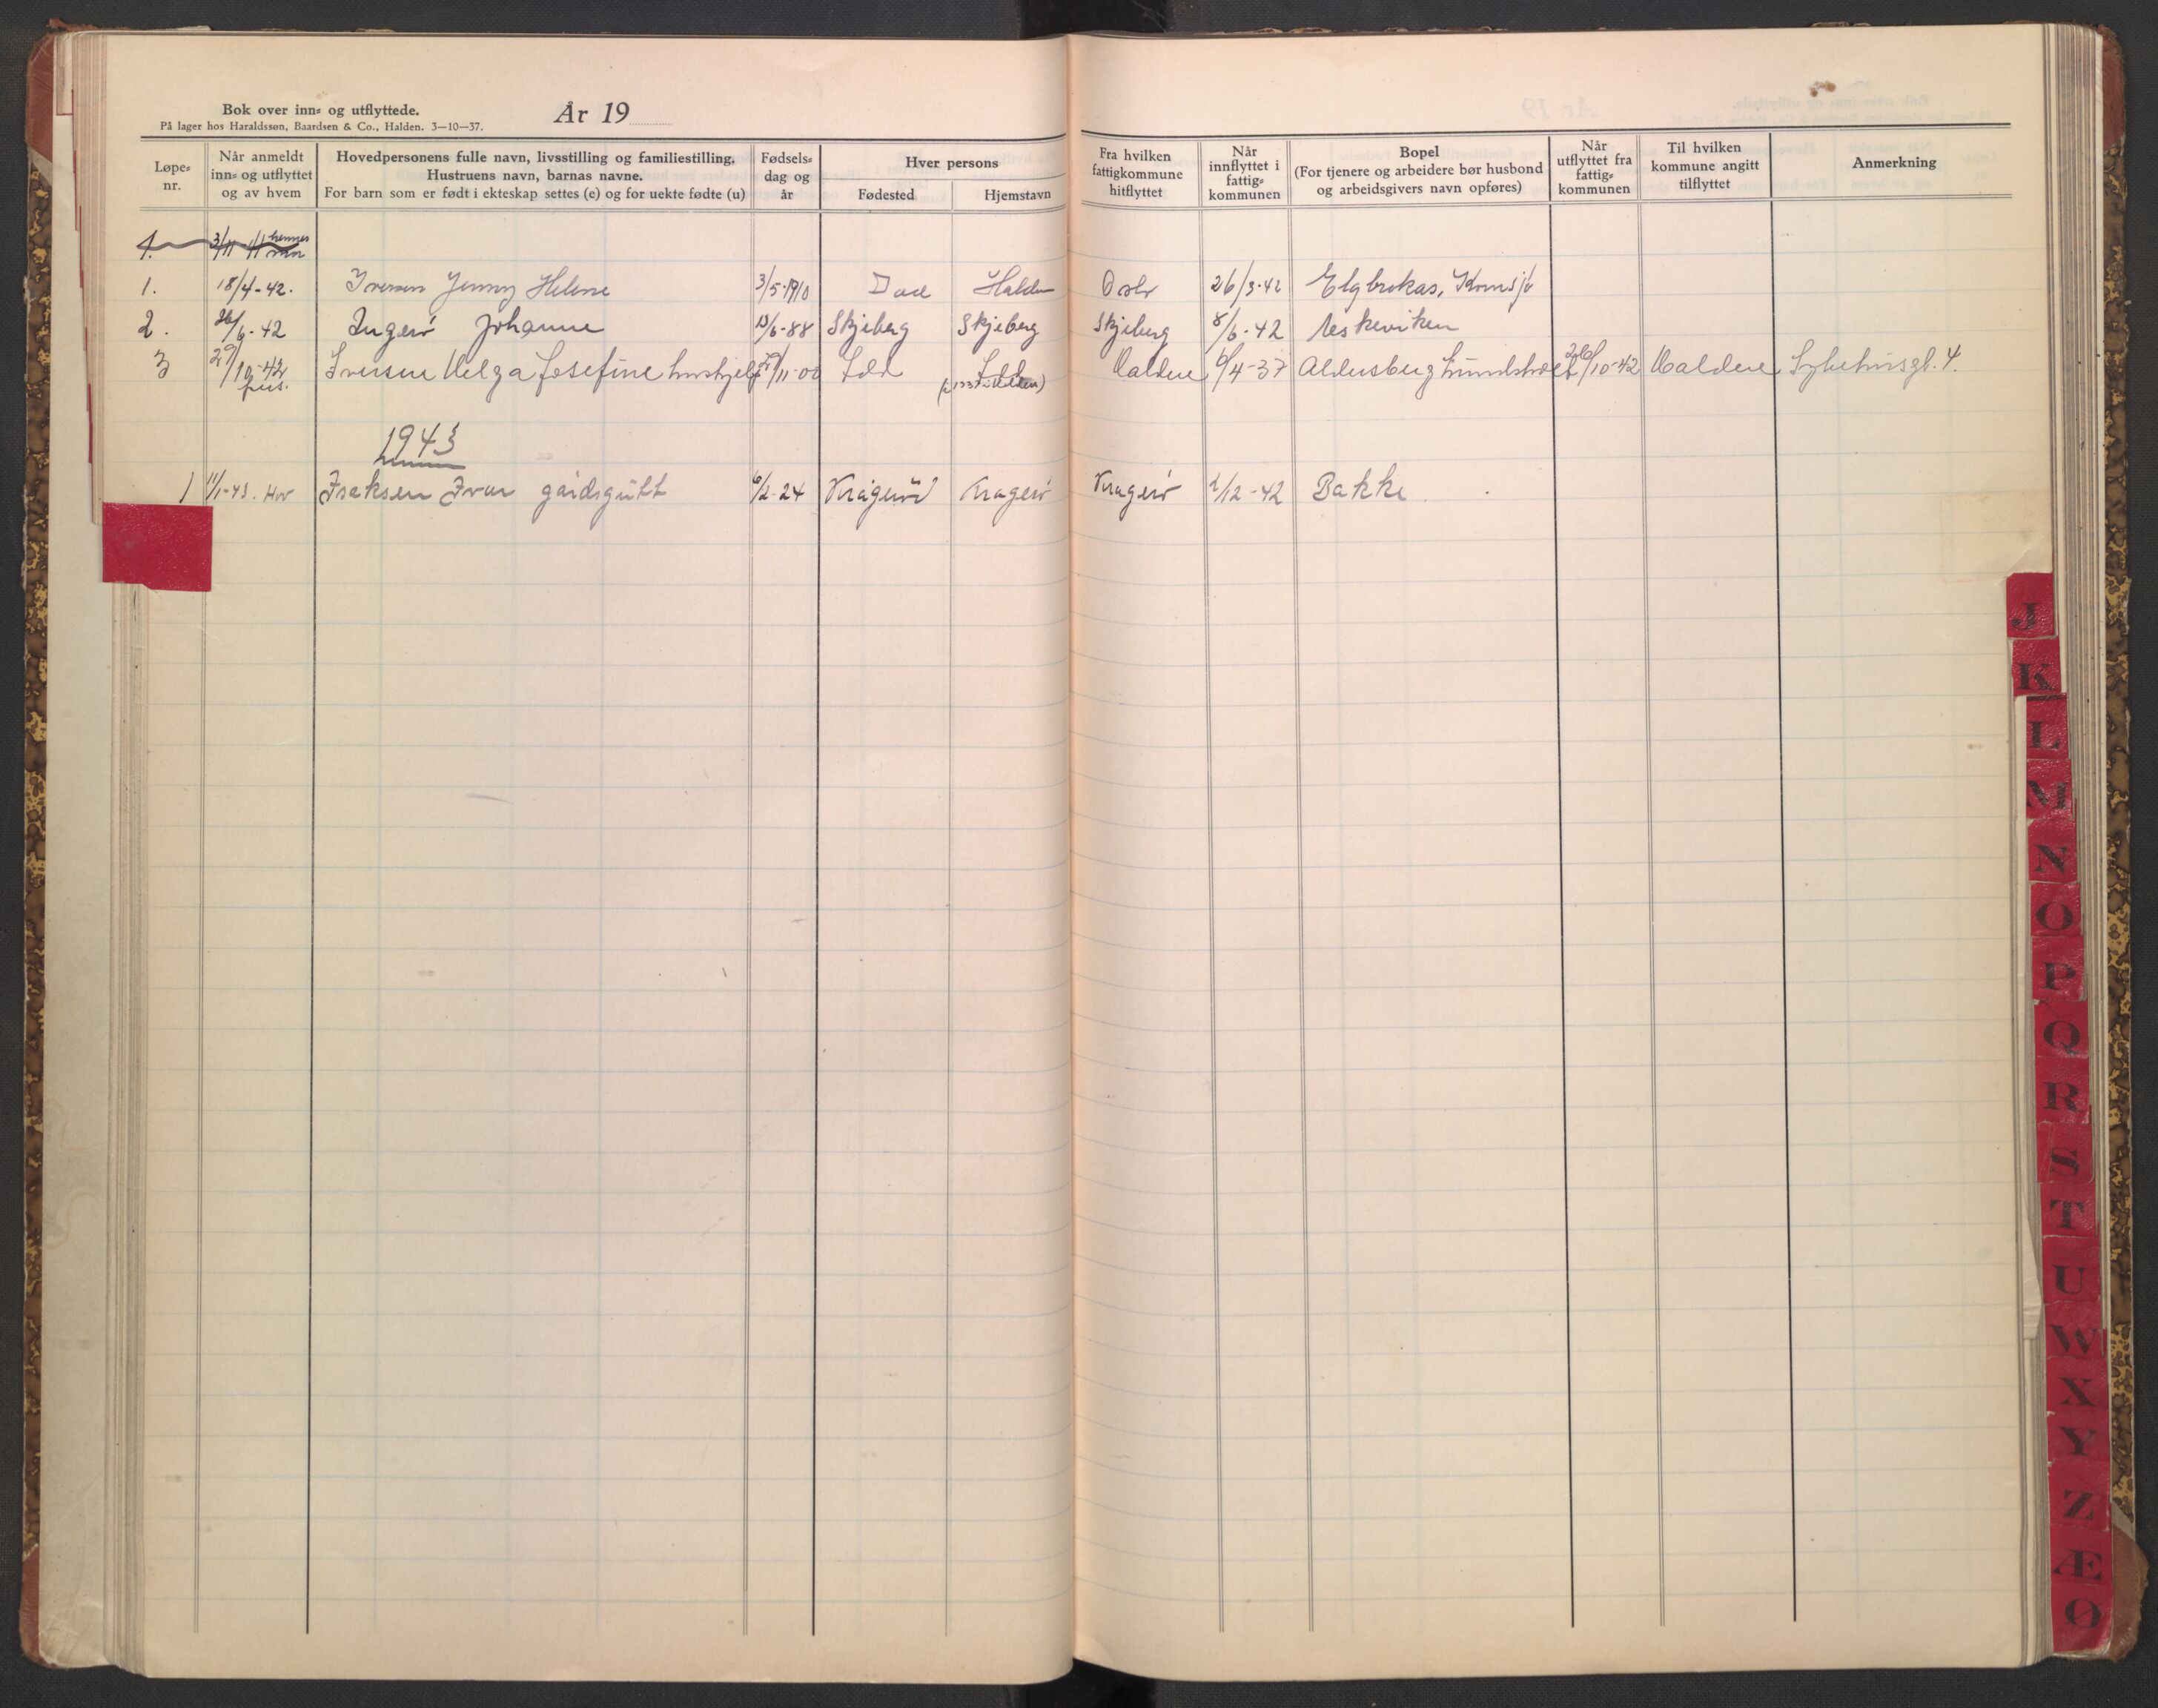 Bok over inn= og utflyttede.
På lager hos Haraldssøn, Baardsen & Co., Halden. 3—10—37.
År 19
Løpe=
nr.
Når anmeldt
inn= og utflyttet
og av hvem
Hovedpersonens fulle navn, livsstilling og familiestilling.
Hustruens navn, barnas navne.
For barn som er født i ekteskap settes (e) og for uekte fødte (u)
Fødsels=
dag og
år
Hver persons
Fødested
Hjemstavn
Fra hvilken
fattigkommune
hitflyttet
Når
innflyttet i
fattig=
kommunen
Bopel
(For tjenere og arbeidere bør husbond
og arbeidsgivers navn opføres)
Når
utflyttet fra
fattig=
kommunen
Til hvilken
kommune angitt
tilflyttet
Anmerkning
1. 3/11
1. 18/4-42. Iversen Jenny Helene 3/5-1910 Halden Oslo 26/3-42
2. 26/6-42 Ingerø Johanne 13/6-88 Skjeberg Skjeberg Skjeberg 8/6-42 Askeviken
3 29/10-42 Iversen Helga Josefine hushjelp 29/11-00 Idd Idd Halden 6/4-37 26/10-42 Halden Sykehusgt. 4.
pers.
1943
1 11/1-43. Hov Isaksen Ivar gårdsgutt 6/2-24 Kragerø Kragerø Kragerø 1/12-42 Bakke
J
K
L
M
N
O
P
Q
R
S
T
U
W
X
Y
Z
Æ
Ø